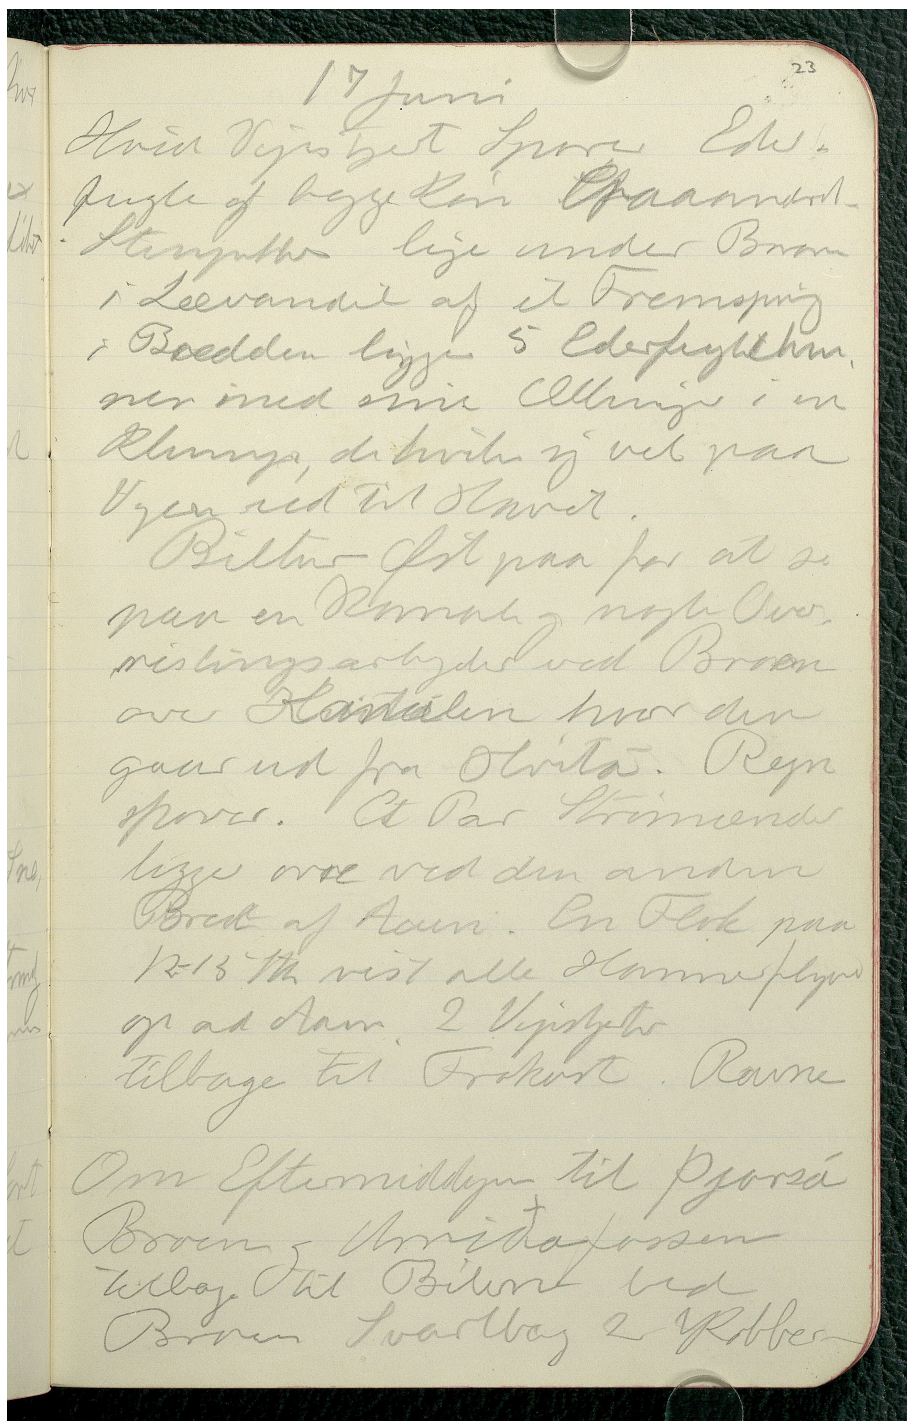 23
17 Juni
Hvid Vipstjert Spover Eder-
fugle af begge Køn Graaand
Stenpikker lige under Broen
i Læevandet af et Fremspring
i Bredden ligger 5 Ederfuglehun-
ner med sine Ællinger i en
Klynge, de hviler sig vel paa
Vejen ud til Havet.
Biltur Øst paa for at se
paa en Kanal og nogle Over-
rislingsarbejder ved Broen
over Kanalen hvor den
gaar ud fra Hvitá. Regn
spover. Et Par Strømænder
ligger ovre ved den anden
Bred af Aaen. En Flok paa
12-15 Stk vist alle Hanner flyver
op ad Aaen. 2 Vipstjerter
tilbage til Frokost. Ravne
Om Eftermiddagen til Þjorsá
Broen og Urriðafossen
tilbage til Bilen ved
Broen Svartbag 2 Kobber